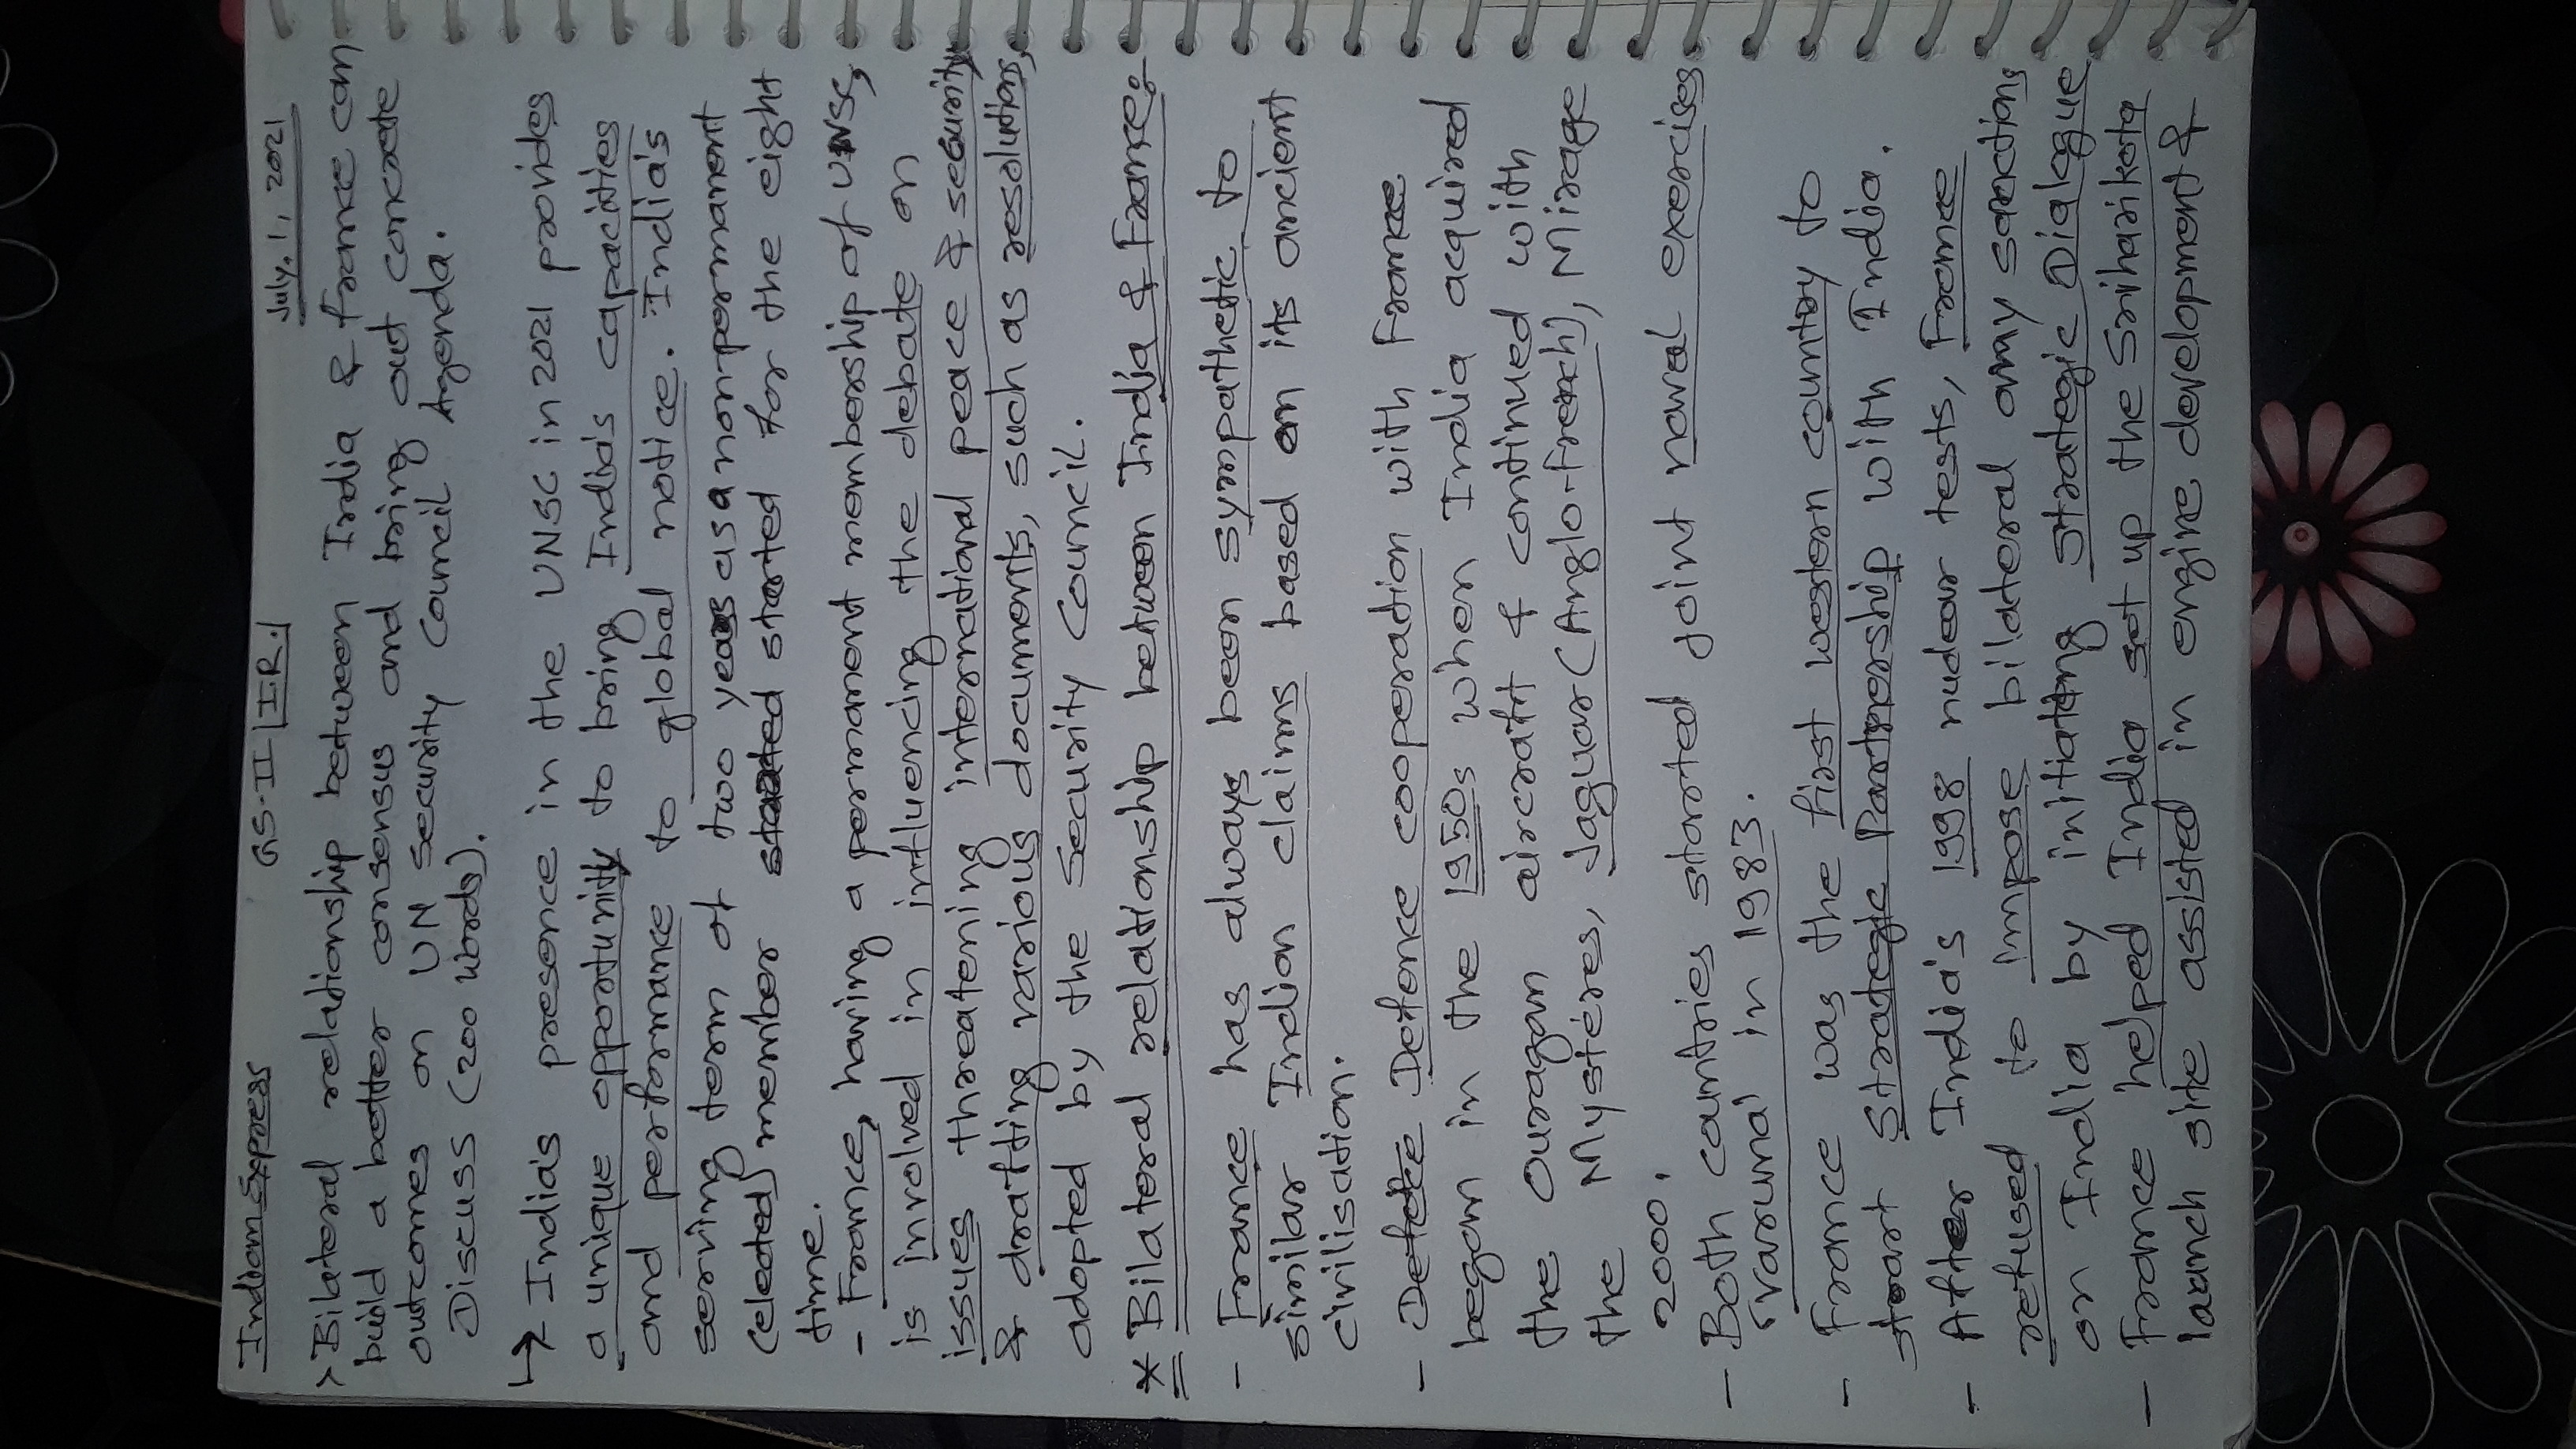 Indian Express GS-II I.R. July. 1, 2021
> Bilateral relationship between India & france can
build a better consensus and bring out concrete
outcomes on UN security Council Agenda.
Discuss (200 words).
↳ India's presence in the UNSC in 2021 provides
a unique opportunity to bring India's capacities
and performance to global notice. India's
serving term of two years as a non-permanent
(elected) member started for the eight
time.
- France, having a permanent membership of UNSC,
is involved in influencing the debate on
issues threatening international peace & security
& drafting various documents, such as resolutions,
adopted by the Security Council.
* Bilateral relationship between India & France:
- France has always been sympathetic to
similar Indian claims based on its ancient
civilisation.
- Defence cooperation with France
began in the 1950s when India acquired
the Ouragan aircraft & continued with
the Mystéres, Jaguar (Anglo-French), Mirage
2000.
- Both countries started joint naval exercises
'Varuna' in 1983.
- France was the first western country to
start Strategic Partnership with India.
- After India's 1998 nuclear tests, France
refused to impose bilateral any sanctions
on India by initiating Strategic Dialogue
- France helped India set up the Sriharikota
launch site assisted in engine development &